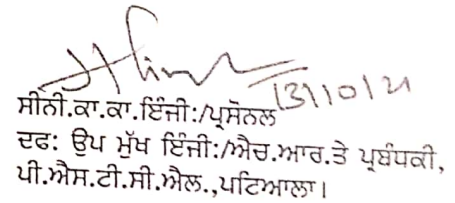 13/10/21
ਸੀਨੀ.ਕਾ.ਕਾ.ਇੰਜੀ:/ਪ੍ਰਸੋਨਲ
ਦਫ: ਉਪ ਮੁੱਖ ਇੰਜੀ:/ਐਚ.ਆਰ.ਤੇ ਪ੍ਰਬੰਧਕੀ,
ਪੀ.ਐਸ.ਟੀ.ਸੀ.ਐਲ.,ਪਟਿਆਲਾ।